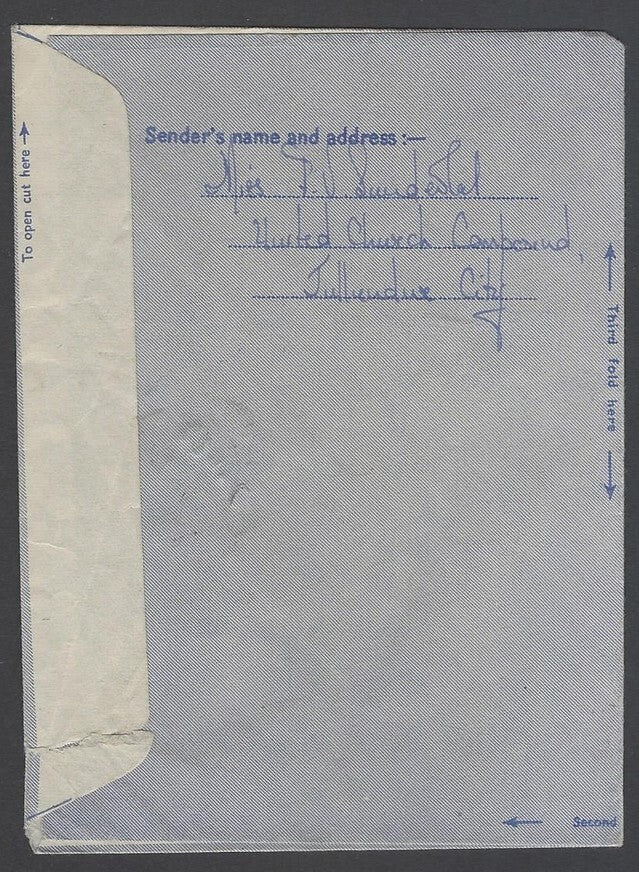 To open cut here →
Sender's name and address :—
Miss F. V. Sunderlal
United Church Compound,
Jullundur City
Third fold here
← Second